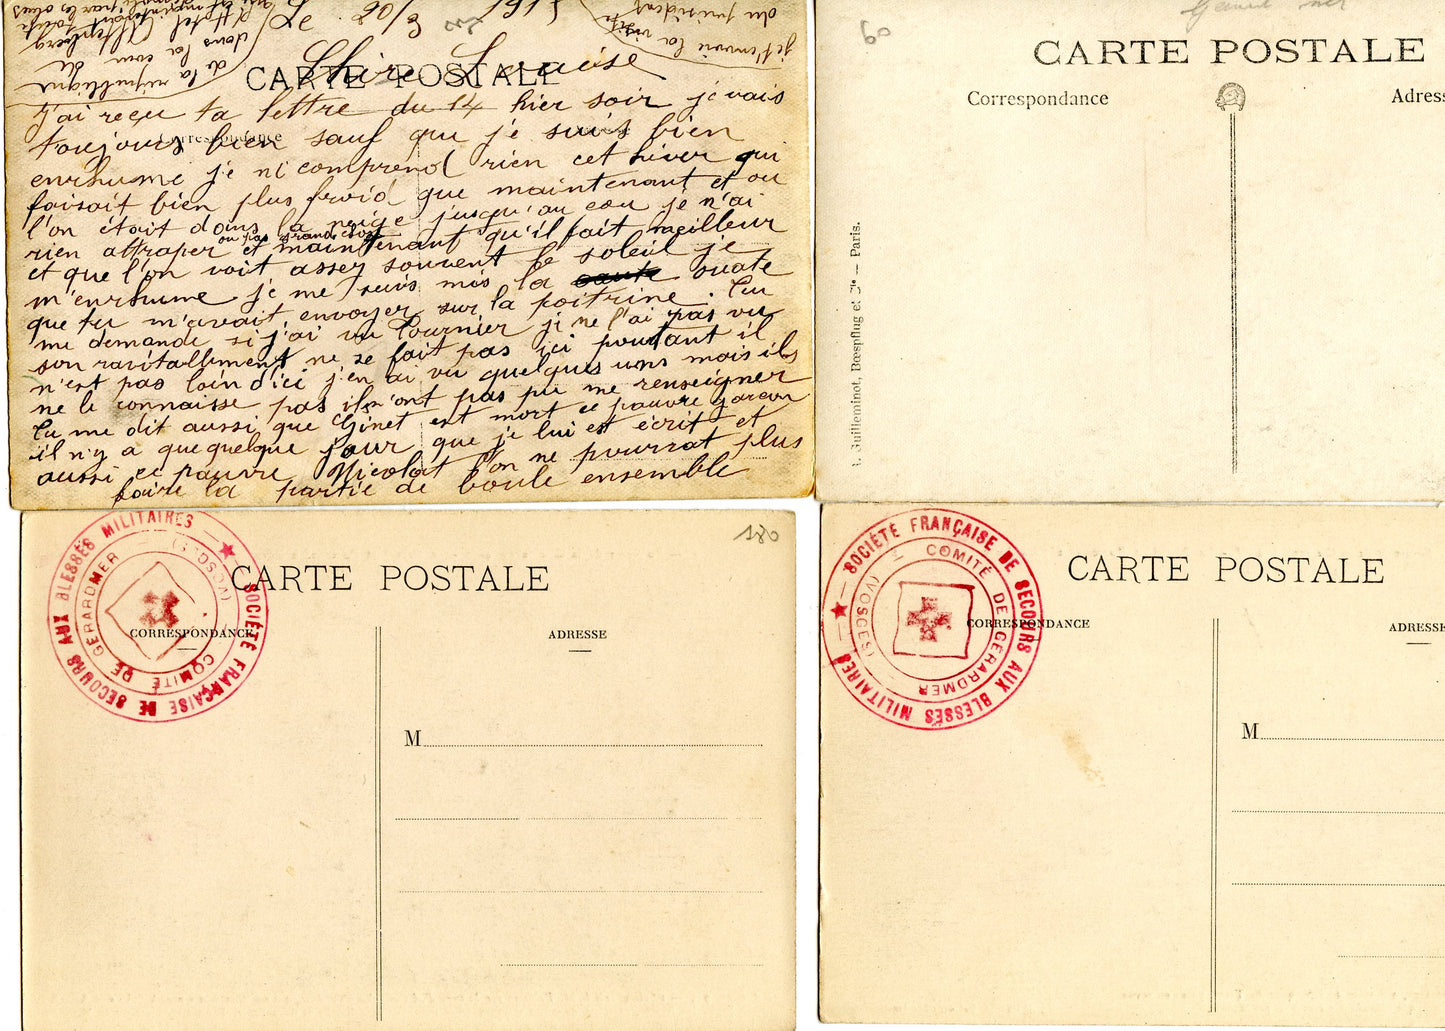 Le 20/3 1915
CARTE POSTALE
Chère Louise
J'ai reçu ta lettre du 14 hier soir je vais
Correspondance
toujours bien sauf que je suis bien
enrhumé je ni comprend rien cet hiver qui
faisait bien plus froid que maintenant et ou
l'on était dans la neige jusqu'au cou je n'ai
rien attraper ou pas grand chose et maintenant qu'il fait meilleur
et que l'on voit asser souvent le soleil je
m'enrhume je me suis mis la ouate
que tu m'avait envoyer sur la poitrine. Tu
me demande si j'ai vu Tournier je ne l'ai pas vu
son ravitallement ne se fait pas ici pourtant il
n'est pas loin d'ici j'en ai vu quelques uns mais ils
ne le connaisse pas ils n'ont pas pu me renseigner
Tu me dit aussi que Ginet est mort ce pauvre garcon
il n'y a quequelque jour que je lui est écrit et
aussi ce pauvre Nicolat l'on ne pourrat plus
faire la partie de boule ensemble
je t'envoie la visite
du président
de la république
dans la cour de
l'Hotel Altenberg
60
Gérard mer
CARTE POSTALE
Correspondance
Adres
Guilleminot, Bœspflug et Cie — Paris.
SOCIÉTÉ FRANÇAISE DE SECOURS AUX BLESSÉS MILITAIRES
COMITÉ DE GÉRARDMER (VOSGES)
180
CARTE POSTALE
CORRESPONDANCE
ADRESSE
M
SOCIÉTÉ FRANÇAISE DE SECOURS AUX BLESSÉS MILITAIRES
COMITÉ DE GÉRARDMER (VOSGES)
CARTE POSTALE
CORRESPONDANCE
ADRESSE
M